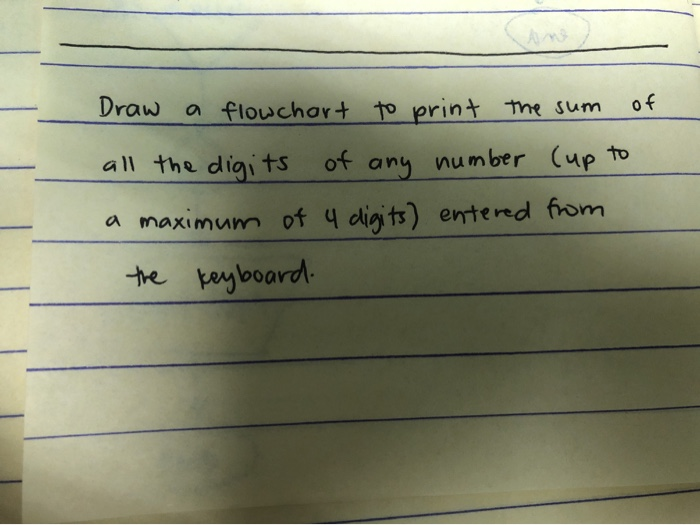 Draw a flowchart to print the sum of
all the digits of any number (up to
a maximum of 4 digits) entered from
the keyboard.